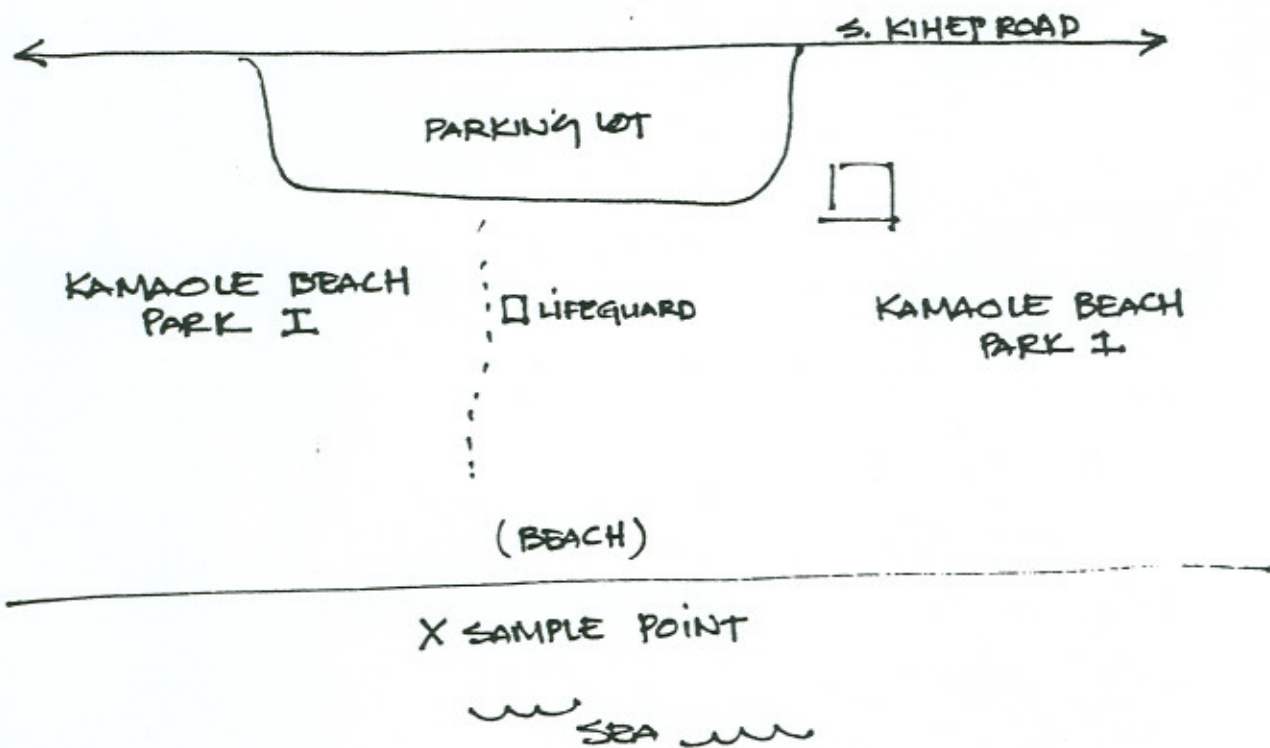 S. KIHEI ROAD
PARKING LOT
KAMAOLE BEACH
PARK I
LIFEGUARD
KAMAOLE BEACH
PARK I
(BEACH)
X SAMPLE POINT
SEA